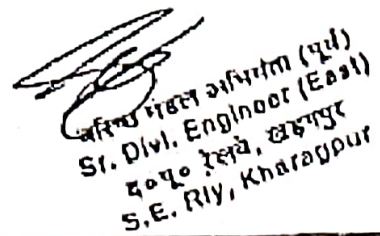 वरिष्ठ मंडल अभियंता (पूर्व)
Sr. Divl. Engineer (East)
द०पू० रेलवे, खड़गपुर
S.E. Rly, Kharagpur